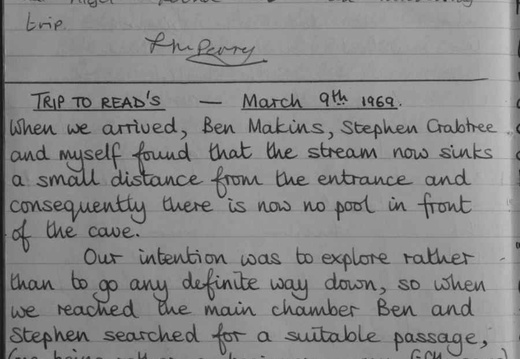 trip.
TRIP TO READ'S — March 9th 1969.
When we arrived, Ben Makins, Stephen Crabtree
and myself found that the stream now sinks
a small distance from the entrance and
consequently there is now no pool in front
of the cave.
Our intention was to explore rather
than to go any definite way down, so when
we reached the main chamber Ben and
Stephen searched for a suitable passage,